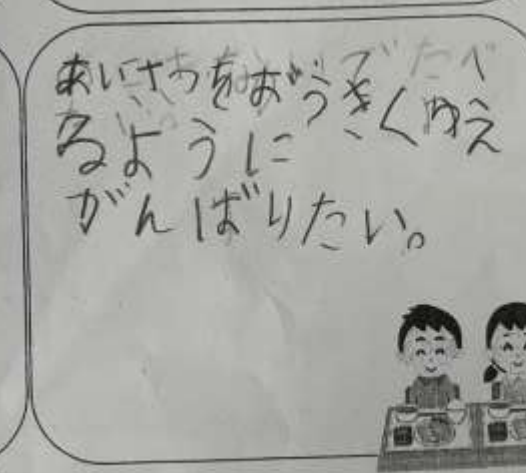 あいさつをおうきくゆえ
るように
がんばりたい。